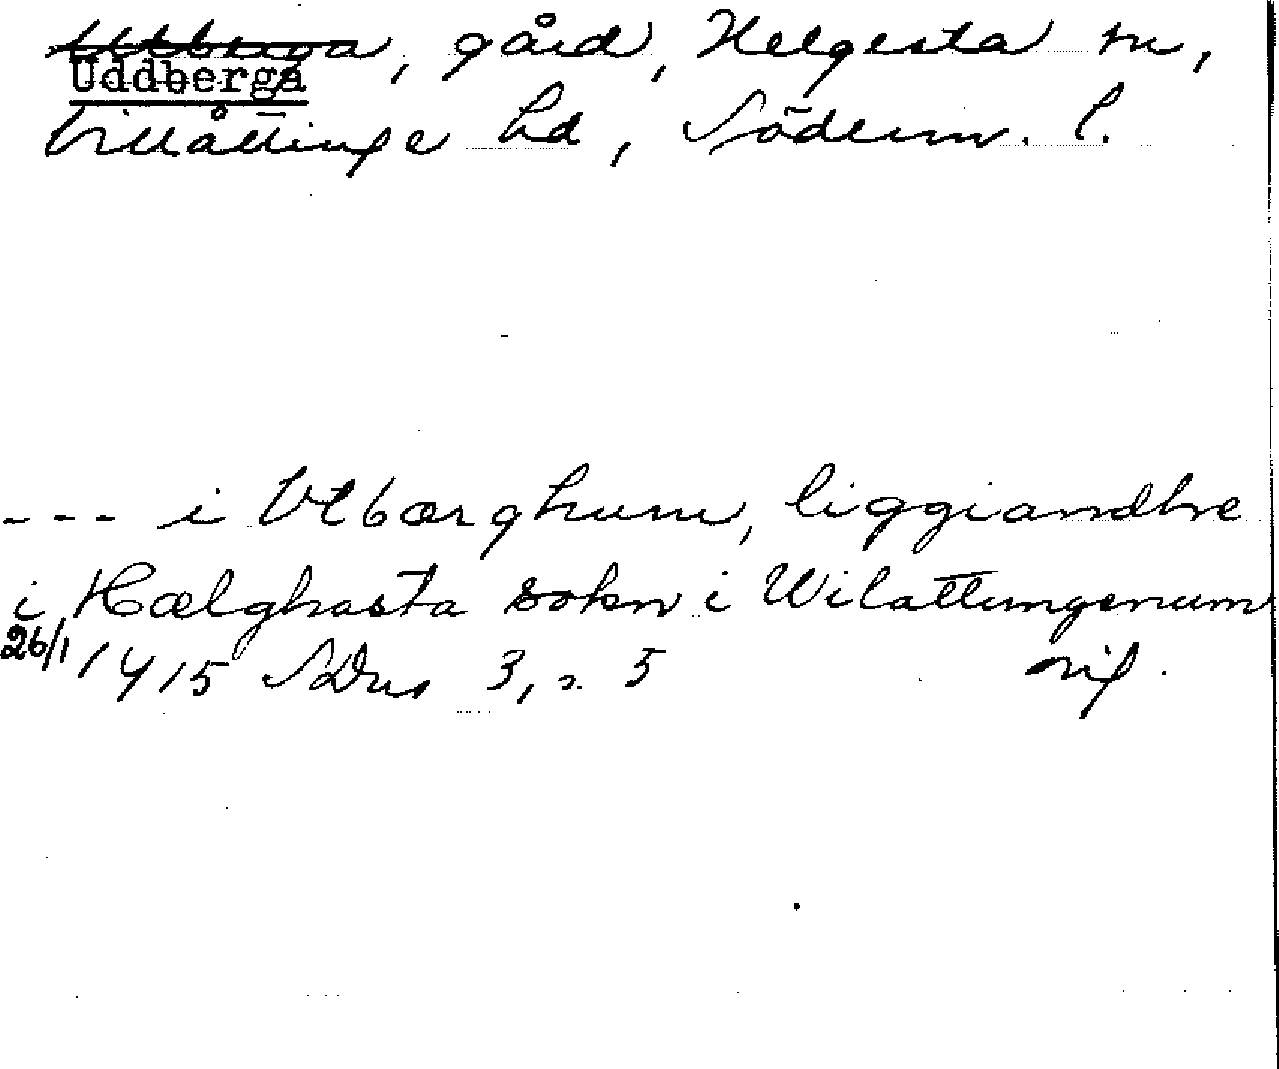 Utberga, gård, Helgesta sn,
Uddberga
Villåttinge hd, Söderm. l.
--- i Vtbærghum, liggiandhe
i Hælghasta sokn i Wilattungenum
26/1 1415 SDns 3, s. 5